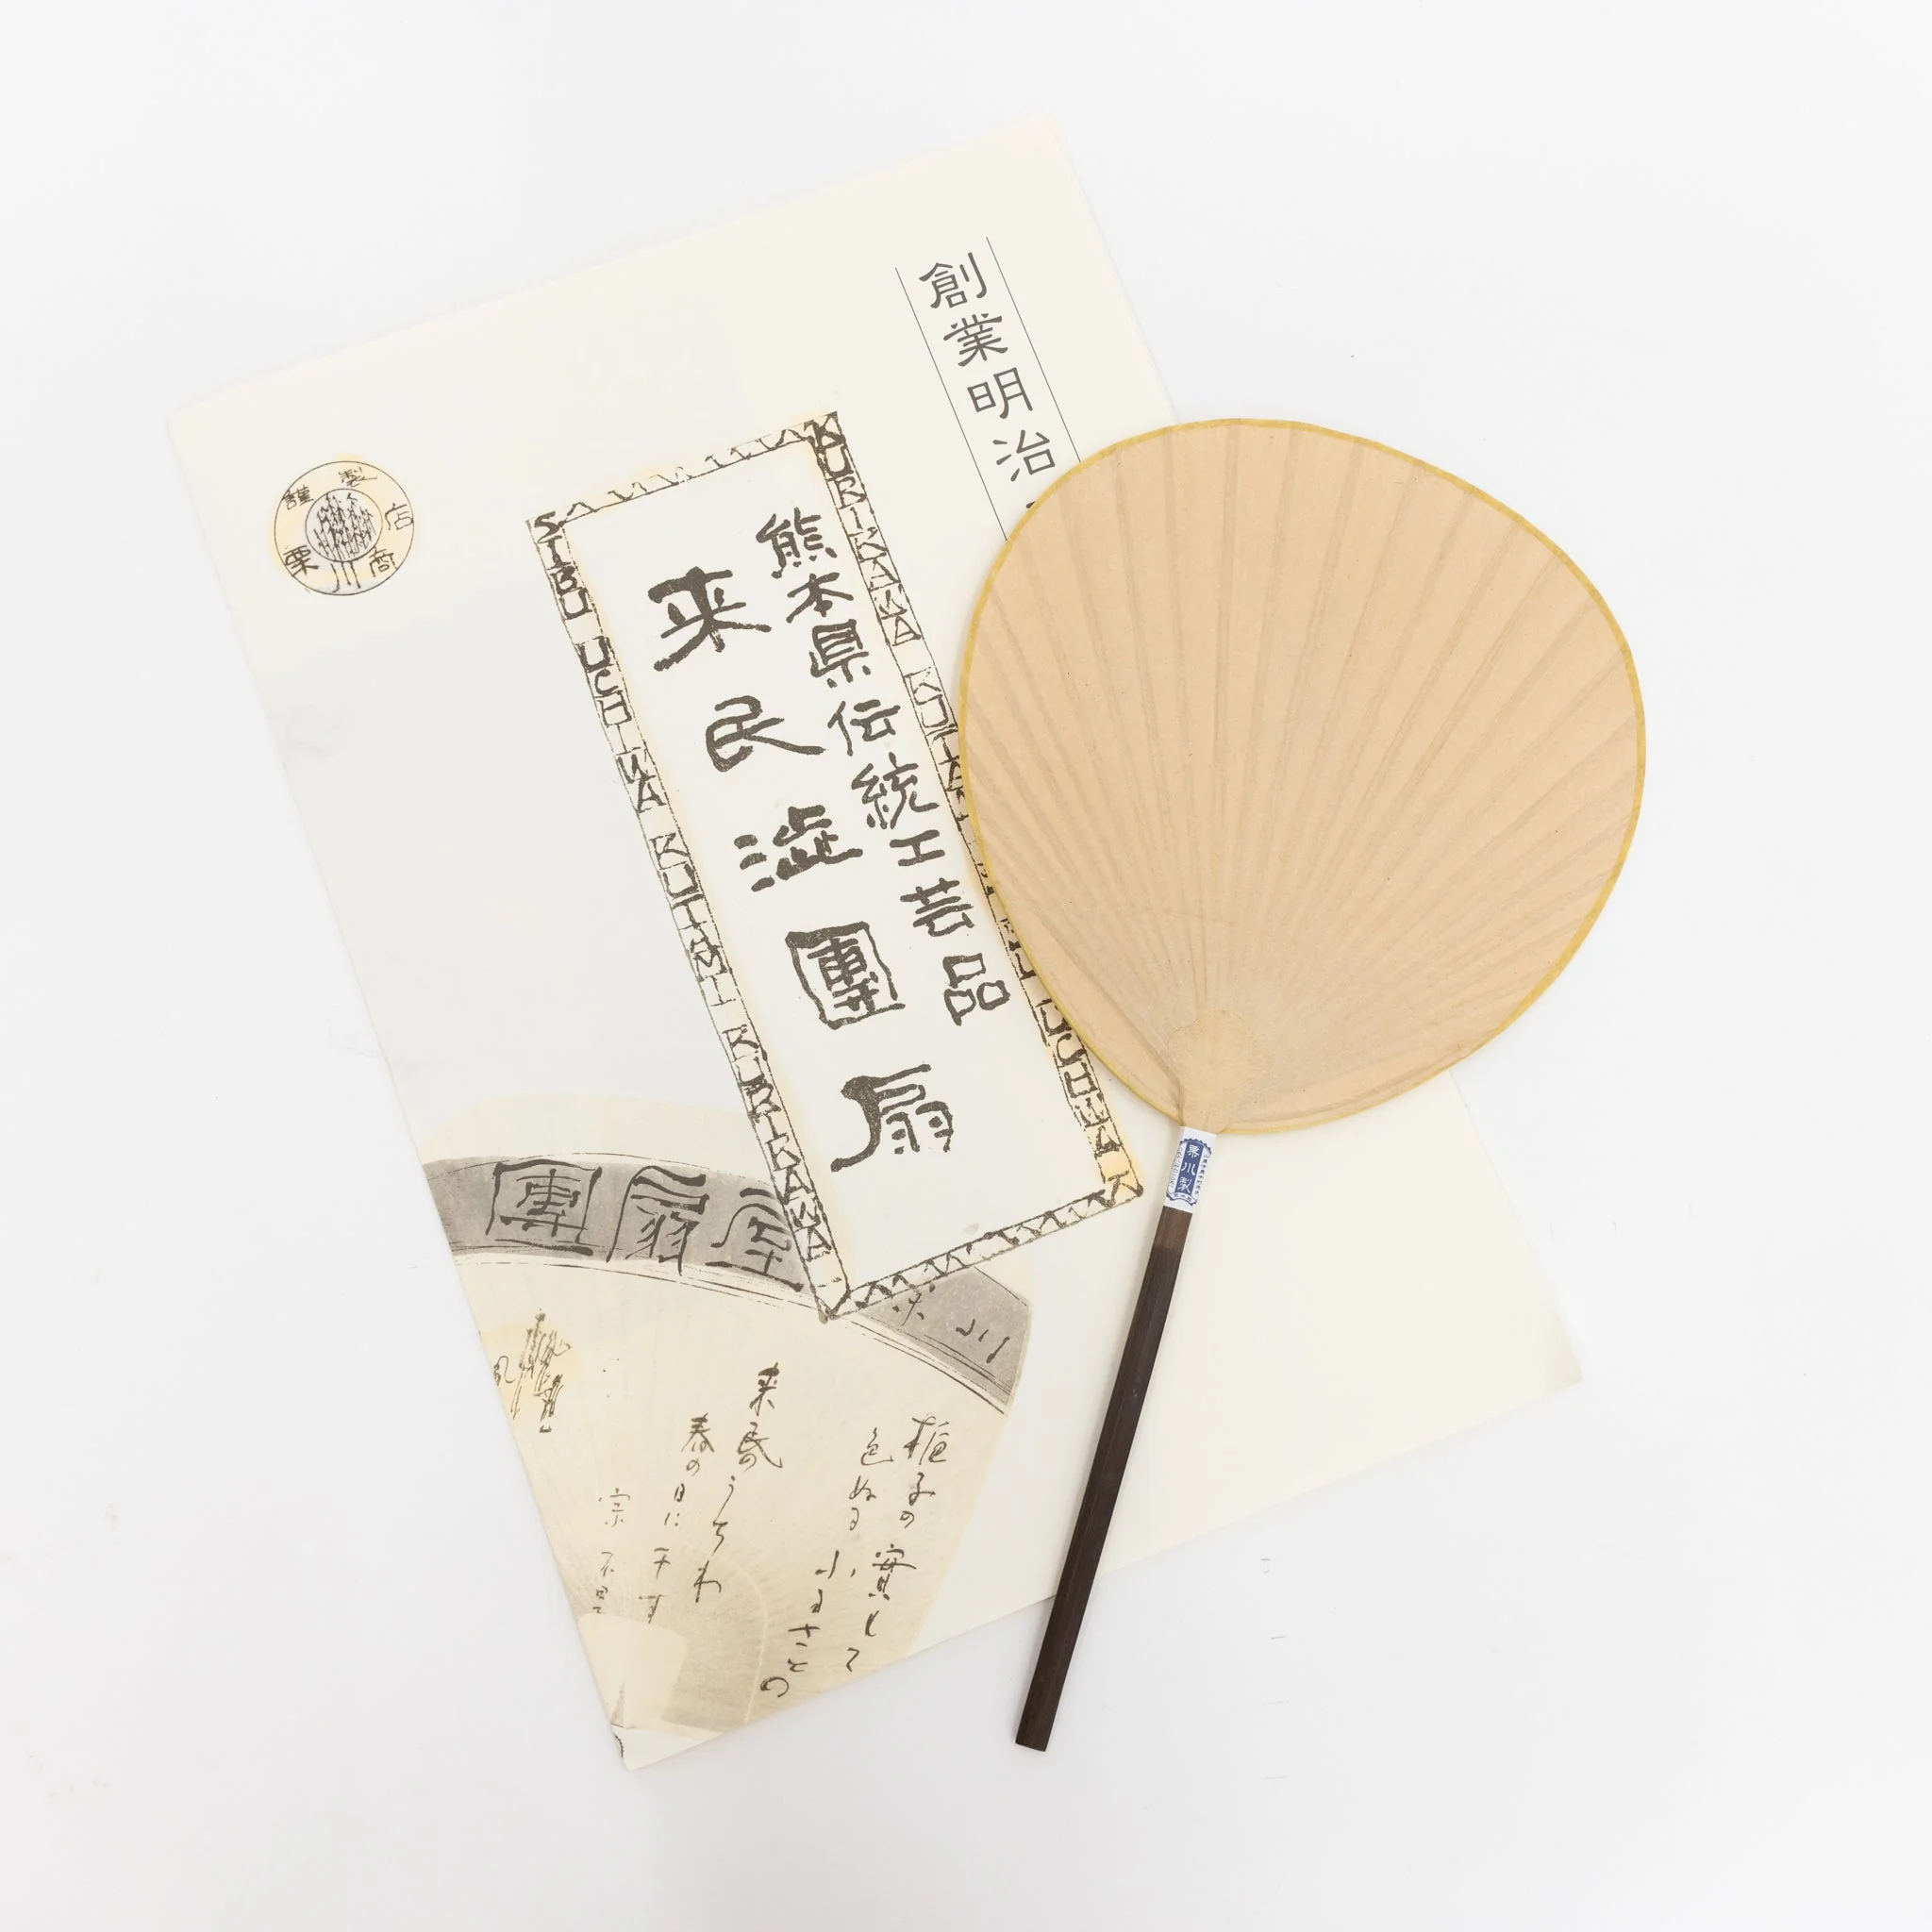 創業明治
熊本県伝統工芸品
来民渋團扇
KURIKAWA KUTAMI
UCHIWA
SIBU UCHIWA KUTAMI KURIKAWA
謹製
栗川商店
團扇屋
栗川
梔子の實して
色ぬる小まさことの
来民のうちわ
春の日に干す
宗不旱
栗川製